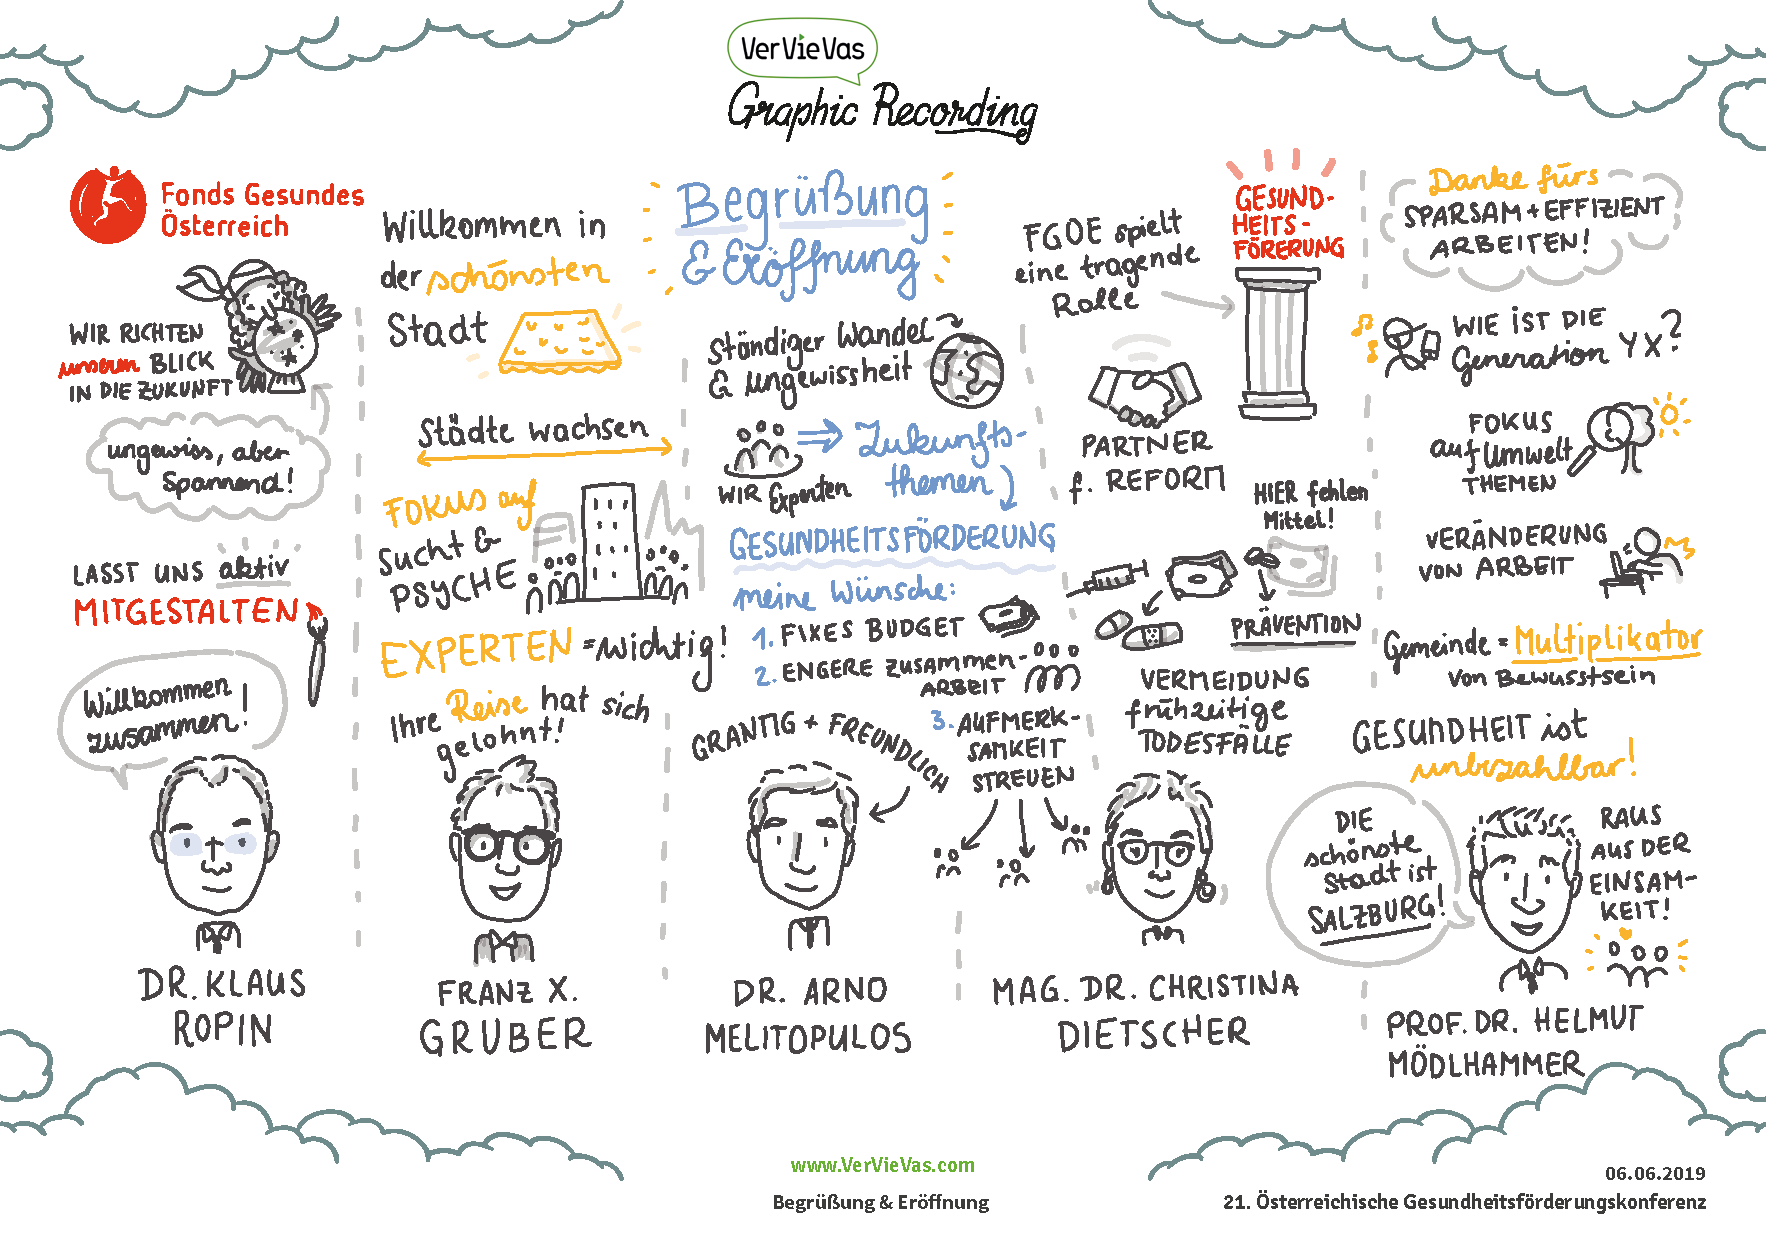 VerVieVas
Graphic Recording
Fonds Gesundes
Österreich
WIR RICHTEN
unseren BLICK
IN DIE ZUKUNFT
ungewiss, aber
Spannend!
LASST UNS aktiv
MITGESTALTEN
Willkommen
zusammen!
DR. KLAUS
ROPIN
Willkommen in
der schönsten
Stadt
Städte wachsen
FOKUS auf
Sucht &
PSYCHE
EXPERTEN = wichtig!
Ihre Reise hat sich
gelohnt!
FRANZ X.
GRUBER
Begrüßung
& Eröffnung
Ständiger Wandel
& Ungewissheit
WIR Experten
Zukunfts-
themen
GESUNDHEITSFÖRDERUNG
meine Wünsche:
1. FIXES BUDGET
2. ENGERE ZUSAMMEN-
ARBEIT
3. AUFMERK-
SAMKEIT
STREUEN
GRANTIG + FREUNDLICH
DR. ARNO
MELITOPULOS
FGOE spielt
eine tragende
Rolle
GESUND-
HEITS-
FÖRERUNG
PARTNER
f. REFORM
HIER fehlen
Mittel!
PRÄVENTION
VERMEIDUNG
frühzeitige
TODESFÄLLE
MAG. DR. CHRISTINA
DIETSCHER
Danke fürs
SPARSAM + EFFIZIENT
ARBEITEN!
WIE IST DIE
Generation YX?
FOKUS
auf Umwelt
THEMEN
VERÄNDERUNG
VON ARBEIT
Gemeinde = Multiplikator
von Bewusstsein
GESUNDHEIT ist
unbezahlbar!
DIE
schönste
Stadt ist
SALZBURG!
RAUS
AUS DER
EINSAM-
KEIT!
PROF. DR. HELMUT
MÖDLHAMMER
www.VerVieVas.com
Begrüßung & Eröffnung
06.06.2019
21. Österreichische Gesundheitsförderungskonferenz